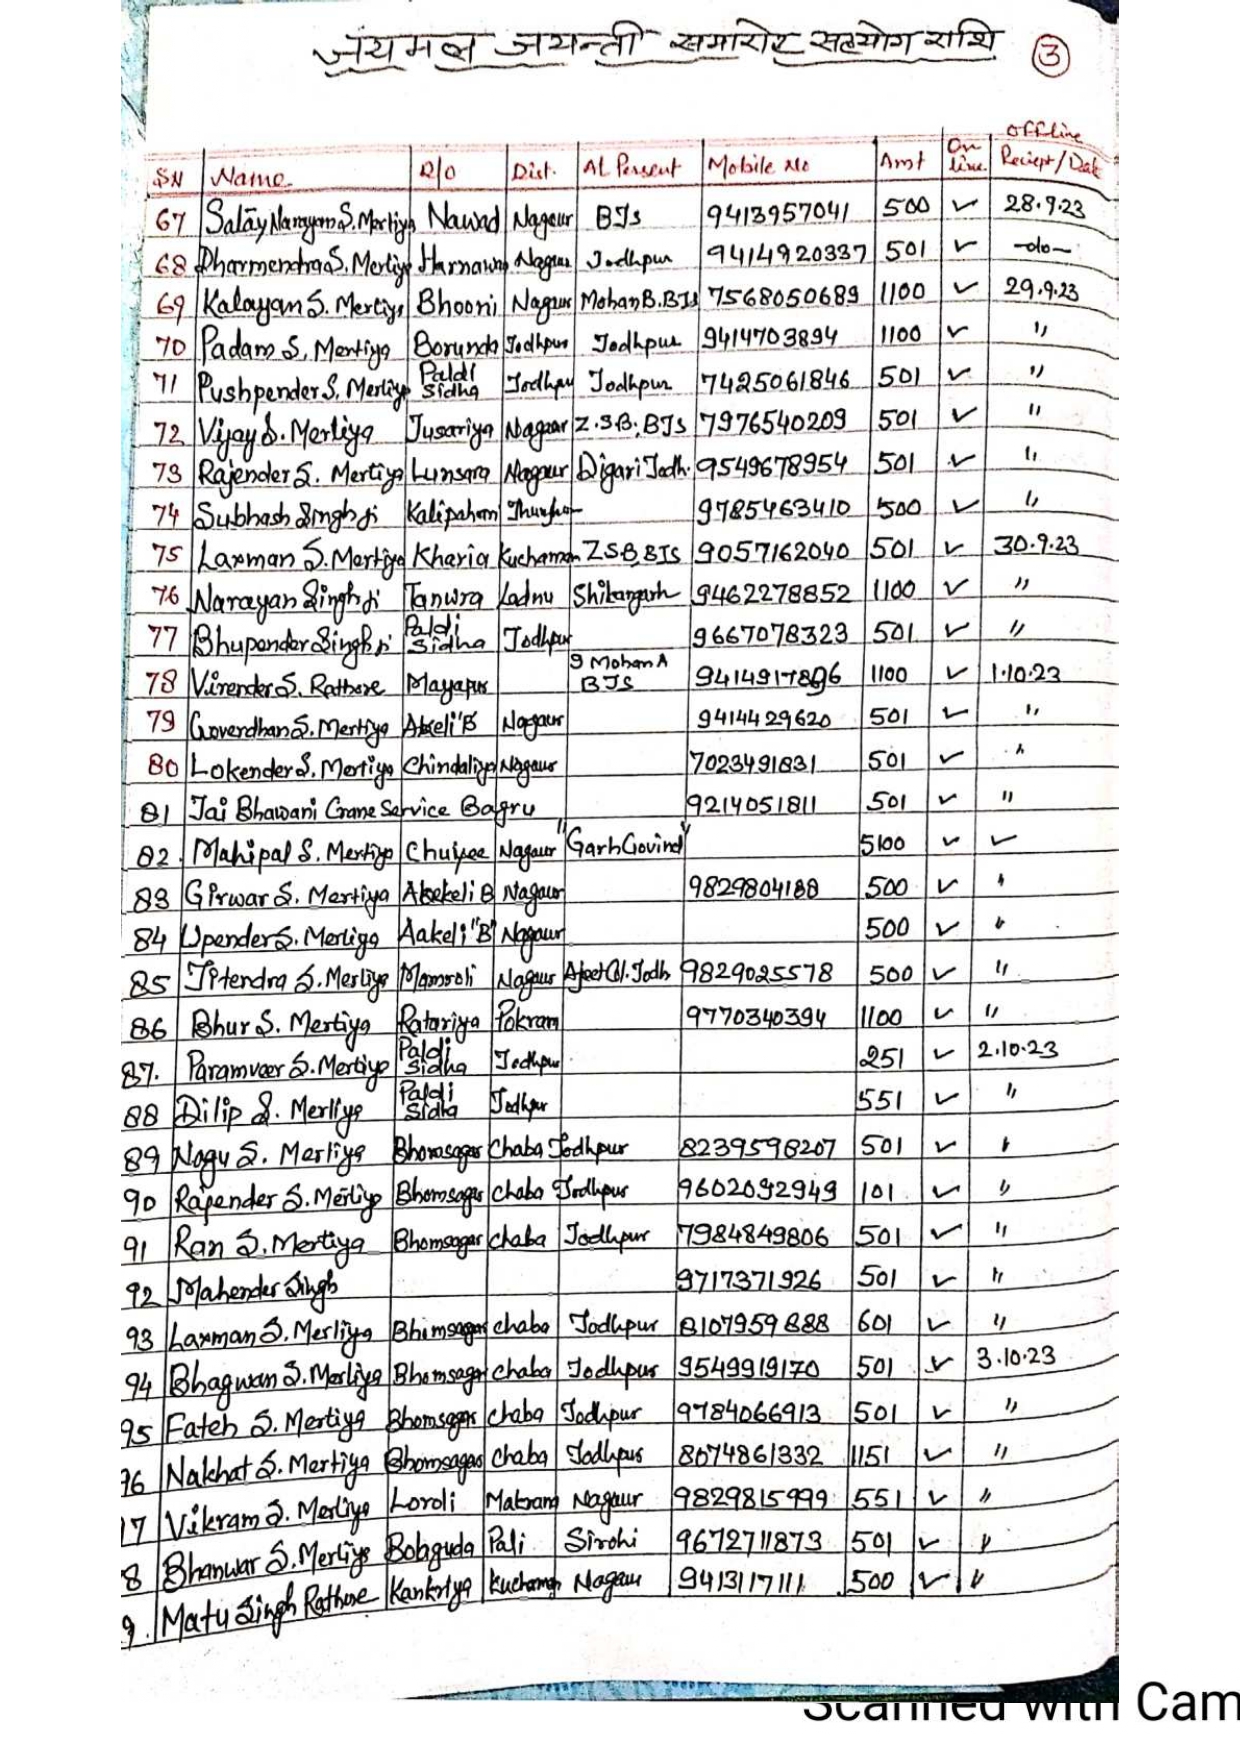 जयमल जयन्ती समारोह सहयोग राशि 3
offline
SN Name R/o Dist. At Persent Mobile No Amt On line. Reciept/Date
67 Satay Narayan S. Mertiya Nawad Nagaur BJS 9413957041 500 ✓ 28.9.23
68 Dharmendra S. Mertiya Harnawa Nagaur Jodhpur 9414920337 501 ✓ -do-
69 Kalayan S. Mertiya Bhooni Nagaur Mohan B. BJS 7568050689 1100 ✓ 29.9.23
70 Padam S. Mertiya Borunda Jodhpur Jodhpur 9414703894 1100 ✓ "
71 Pushpender S. Mertiya Paldi Sidha Jodhpur Jodhpur 7425061846 501 ✓ "
72 Vijay S. Mertiya Jusariya Nagaur Z.S.B; BJS 7976540209 501 ✓ "
73 Rajender S. Mertiya Lunsara Nagaur Digari Jodh. 9549678954 501 ✓ "
74 Subhash Singh ji Kalipahari 9785463410 500 ✓ "
75 Laxman S. Mertiya Kharia Kuchaman ZSB, BJS 9057162040 501 ✓ 30.9.23
76 Narayan Singh ji Tanwra Ladnu Shikargarh 9462278852 1100 ✓ "
77 Bhupender Singh ji Paldi Sidha Jodhpur 9667078323 501 ✓ "
78 Virender S. Rathore Mayapur 9 Mohan A BJS 1100 ✓ 1.10.23
79 Goverdhan S. Mertiya Akeli "B" Nagaur 9414429620 501 ✓ "
80 Lokender S. Mertiya Chindaliya Nagaur 7023491831 501 ✓ "
81 Jai Bhawani Crane Service Bagru 9214051811 501 ✓ "
82. Mahipal S. Mertiya Nagaur "Garh Govind" 5100 ✓ ✓
83 Girwar S. Mertiya Akekeli B Nagaur 9829804188 500 ✓ "
84 Upender S. Mertiya Aakeli "B" Nagaur 500 ✓ "
85 Jitendra S. Mertiya Mamroli Nagaur Ajeet Col. Jodh 9829025578 500 ✓ "
86 Bhur S. Mertiya Ratariya Pokran 9770340394 1100 ✓ "
87. Paramveer S. Mertiya Paldi Sidha Jodhpur 251 ✓ 2.10.23
88 Dilip S. Mertiya Paldi Sidha Jodhpur 551 ✓ "
89 Nagu S. Mertiya Bhomsagar Chaba Jodhpur 8239598207 501 ✓ "
90 Rajender S. Mertiya Bhomsagar chaba Jodhpur 9602092949 101 ✓ "
91 Ran S. Mertiya Bhomsagar chaba Jodhpur 7984849806 501 ✓ "
92 Mahender Singh 9717371926 501 ✓ "
93 Laxman S. Mertiya Bhimsagar chaba Jodhpur 8107959888 601 ✓ "
94 Bhagwan S. Mertiya Bhomsagar chaba Jodhpur 9549919170 501 ✓ 3.10.23
95 Fateh S. Mertiya Bhomsagar chaba Jodhpur 9784066913 501 ✓ "
96 Nakhat S. Mertiya Bhomsagar chaba Jodhpur 8074861332 1151 ✓ "
17 Vikram S. Mertiya Loroli Makrana Nagaur 9829815999 551 ✓ "
8 Bhanwar S. Mertiya Bobguda Pali Sirohi 9672711873 501 ✓ "
9. Matu Singh Rathore Kankriya Kuchaman Nagaur 9413117111 500 ✓ "
Scanned with Cam